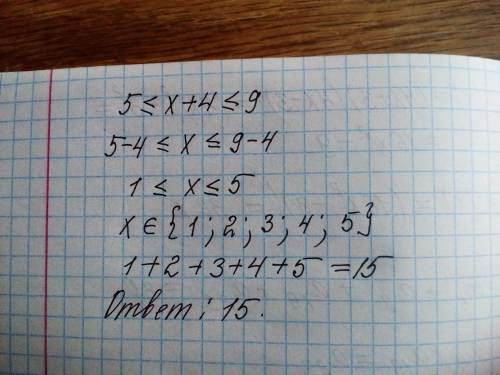 5 ≤ x+4 ≤ 9
5-4 ≤ x ≤ 9-4
1 ≤ x ≤ 5
x ∈ {1; 2; 3; 4; 5}
1+2+3+4+5 =15
Ответ: 15.